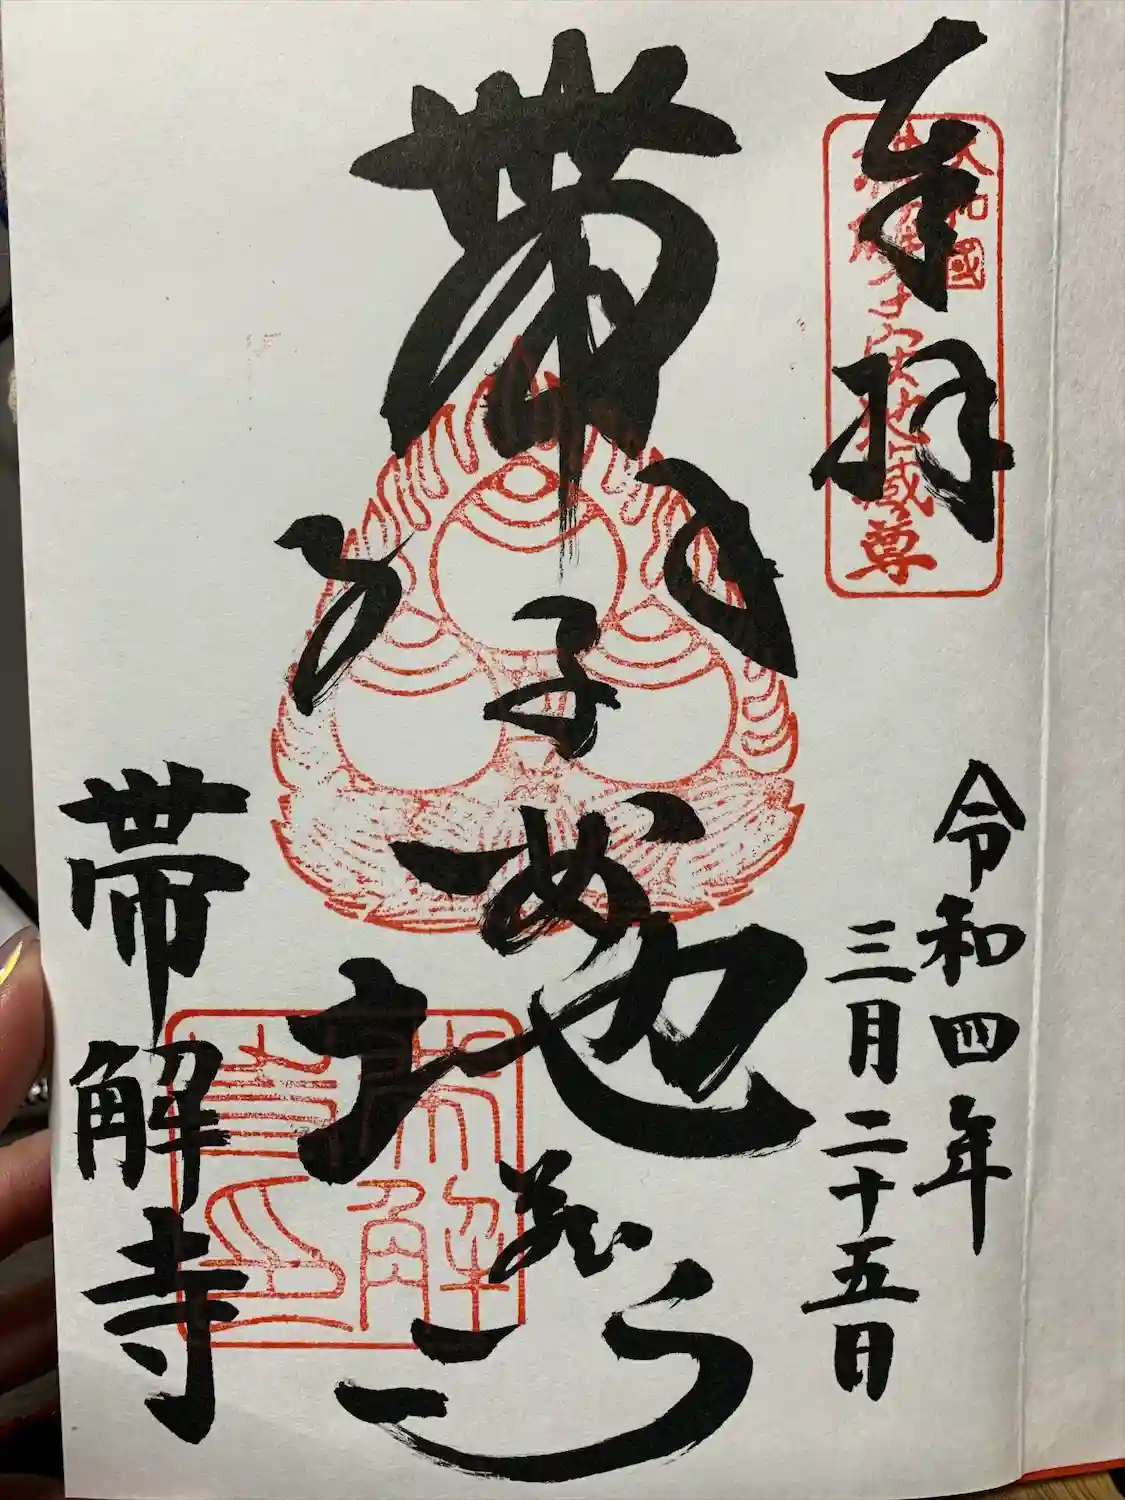 奉拝
大和國
子安地蔵尊
令和四年
三月二十五日
帯
子安地
帯解寺
帯解寺印